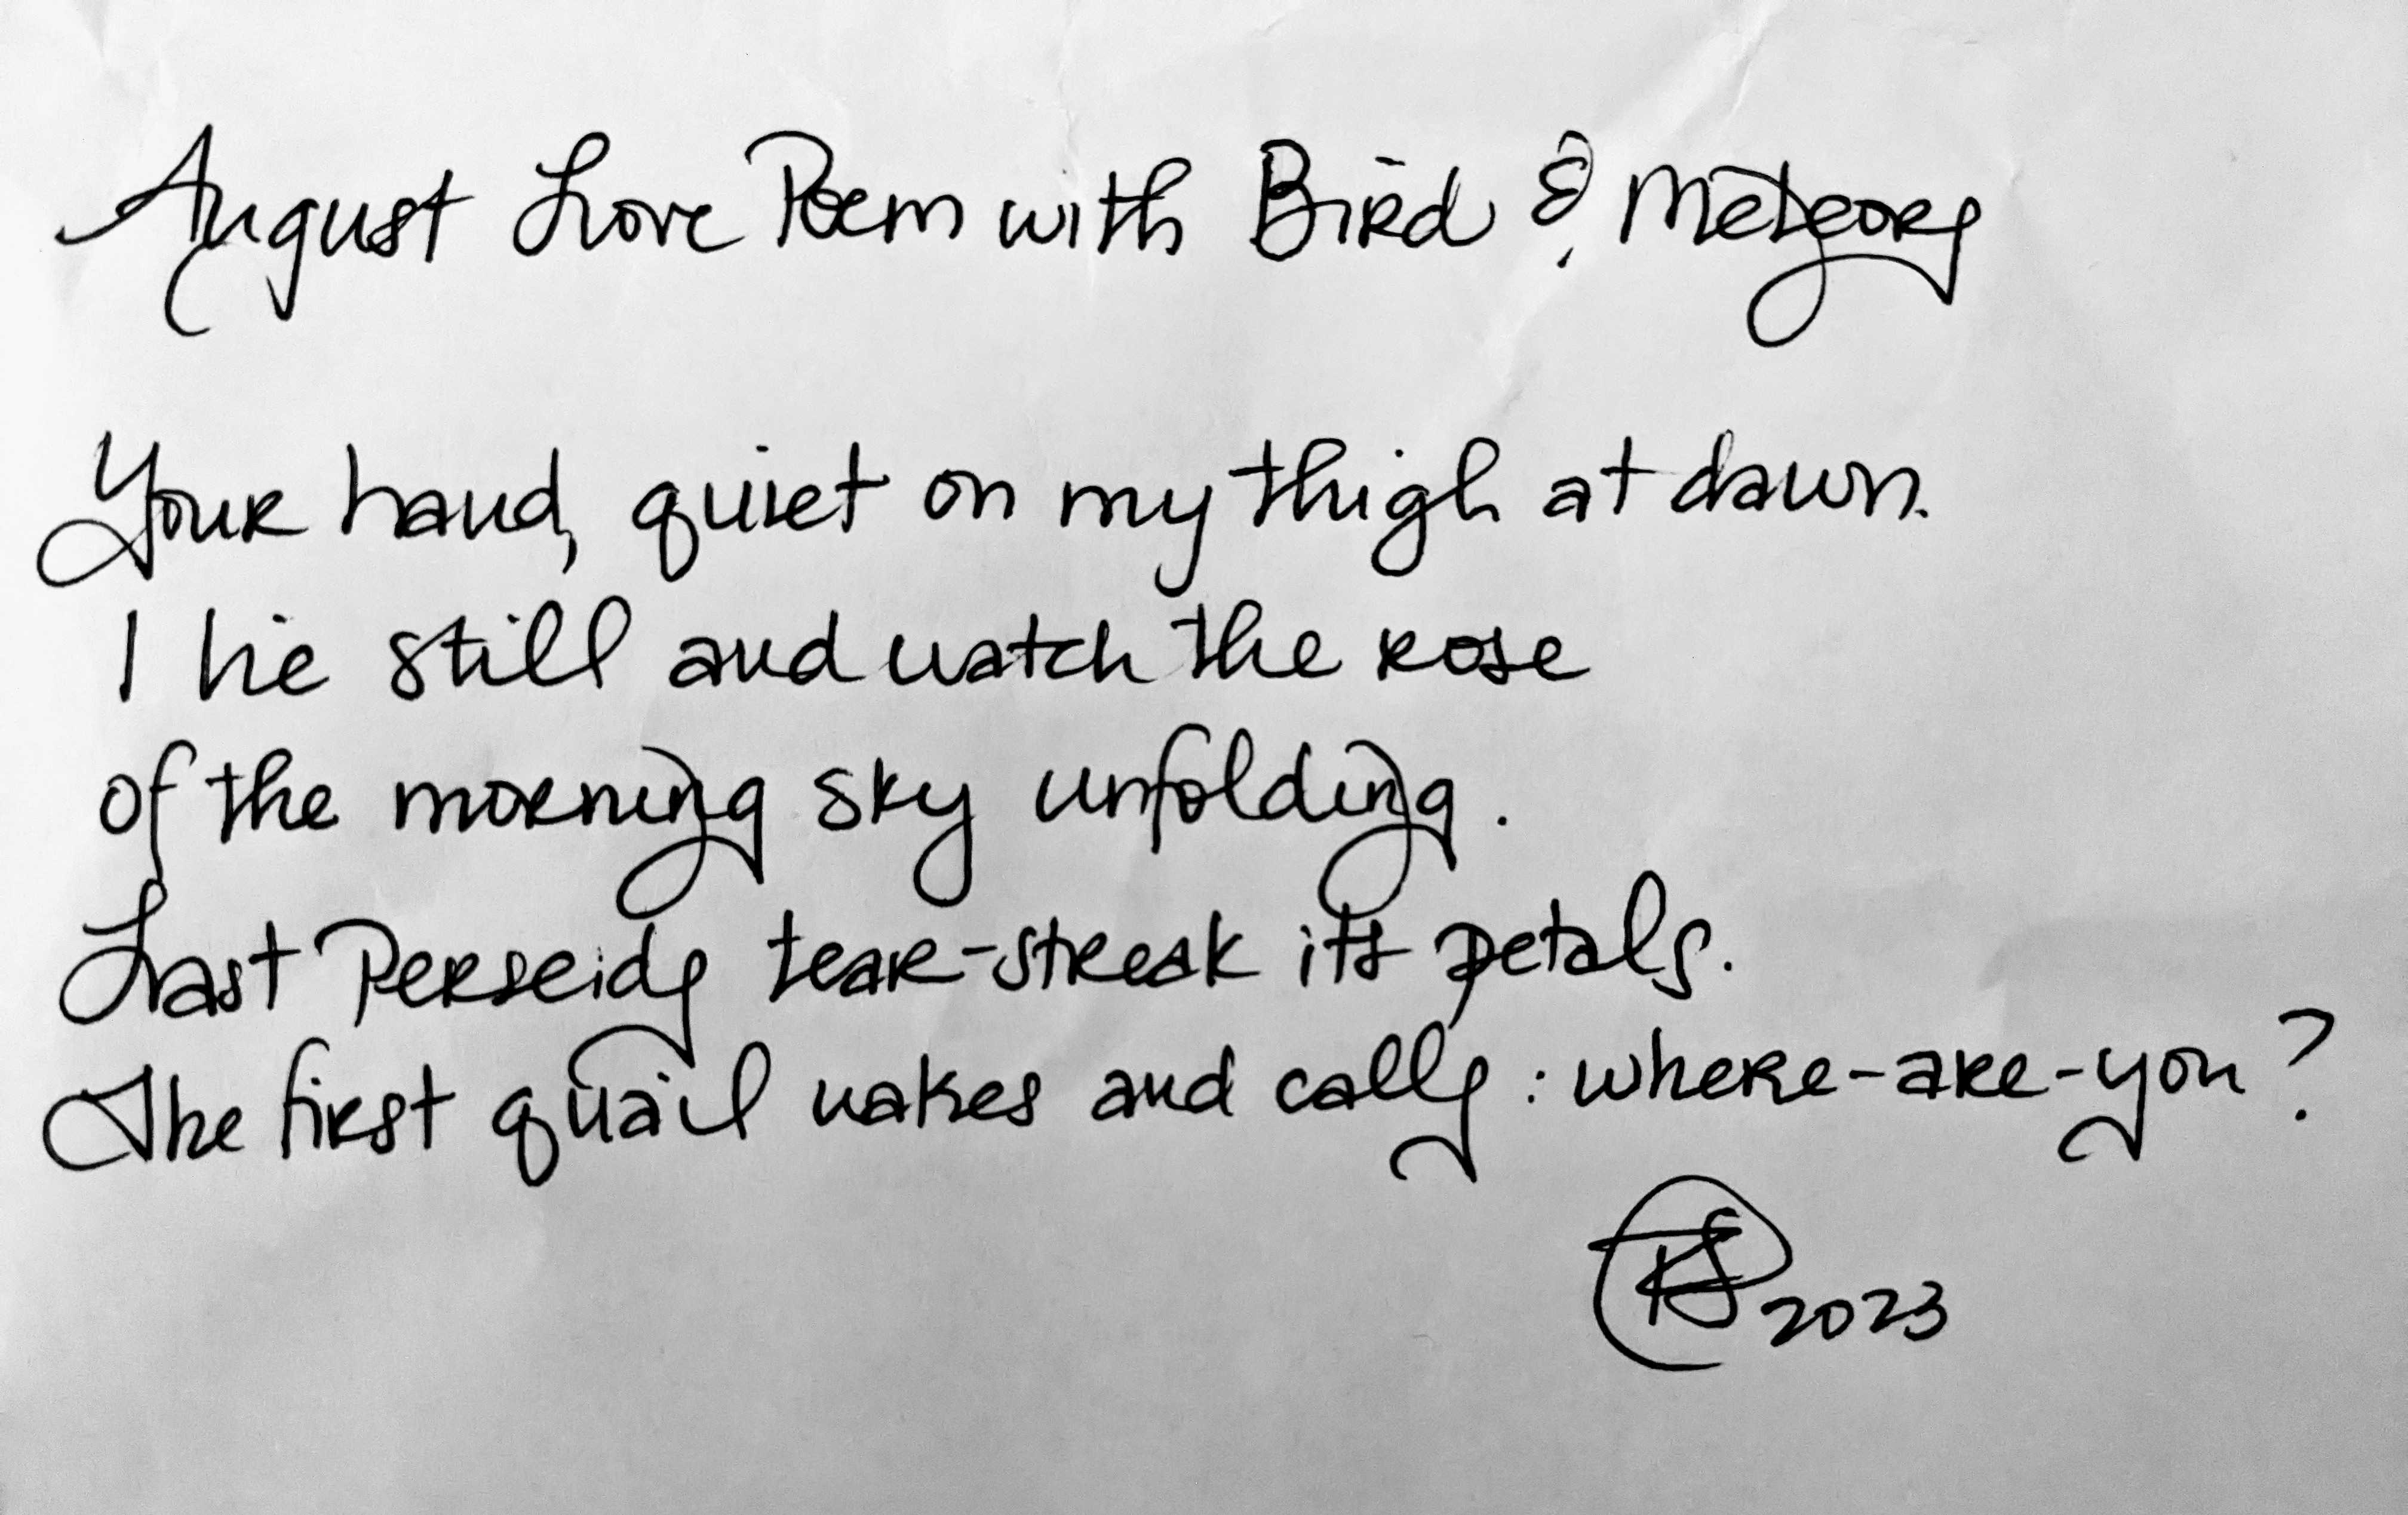 August Love Poem with Bird & Meteors
Your hand, quiet on my thigh at dawn.
I lie still and watch the rose
of the morning sky unfolding.
Last Perseids tear-streak its petals.
The first quail wakes and calls: where-are-you?
2023